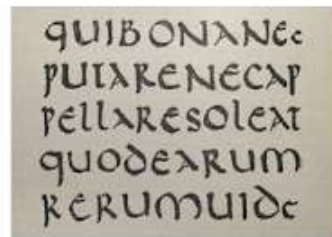 quibonanec
putarenecap
pellaresoleat
quodearum
rerumuidc